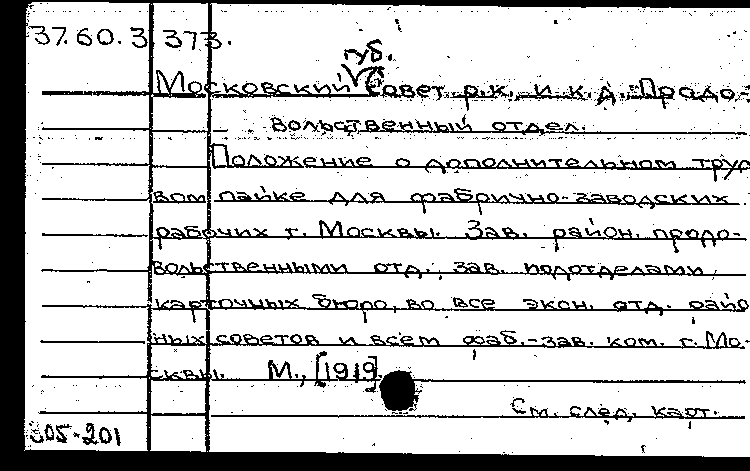 37.60.3.373.
губ.
Московский Совет р.к. и к.д. Продо-
вольственный отдел.
Положение о дополнительном труд
вом пайке для фабрично-заводских
рабочих г. Москвы. Зав. район. продо-
вольственными отд., зав. подотделами,
карточных бюро, во все экон. отд. райо
ных советов и всем фаб.-зав. ком. г. Мо-
сквы. М., [1919].
См. след. карт.
305-201